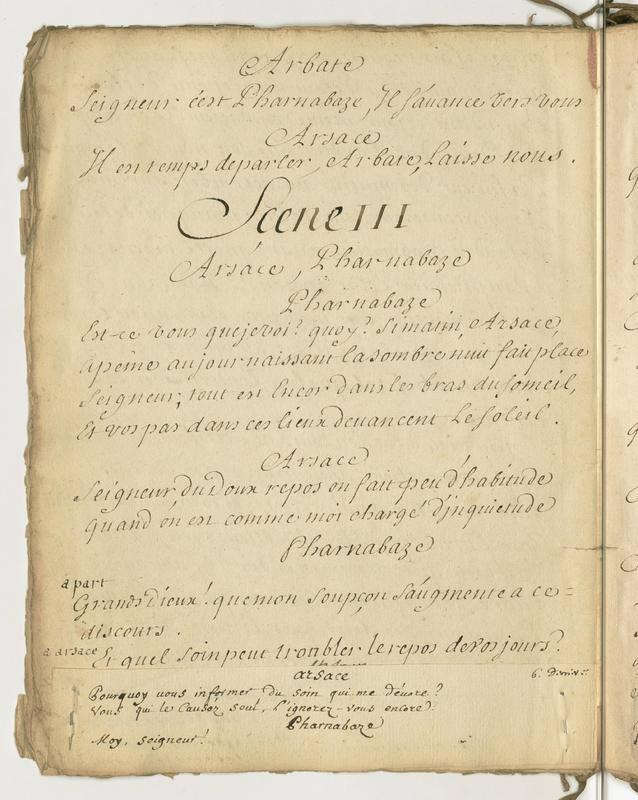 Arbate
Seigneur c'est Pharnabaze, Il s'avance vers vous
Arsace
Il est temps de parler, Arbate, laisse nous.
Scene III
Arsace, Pharnabaze
Pharnabaze
Est-ce vous que je voi? quoy? si matin, Arsace,
Apeine au jour naissant la sombre nuit fait place
Seigneur, tout est Encor dans les bras du someil,
Et vos pas dans ces lieux devancent Le soleil.
Arsace
Seigneur du doux repos on fait peu d'habitude
Quand on est comme moi chargé d'jnquietude
Pharnabaze
a part
Grands dieux! que mon soupçon s'augmente a ce=
discours.
a arsace Et quel soin peut troubler le repos de vos jours?
arsace
Pourquoy vous informer du soin qui me dévore?
Vous qui le Causéz seul, L'ignorez-vous encore?
Pharnabaze
Moy, seigneur!